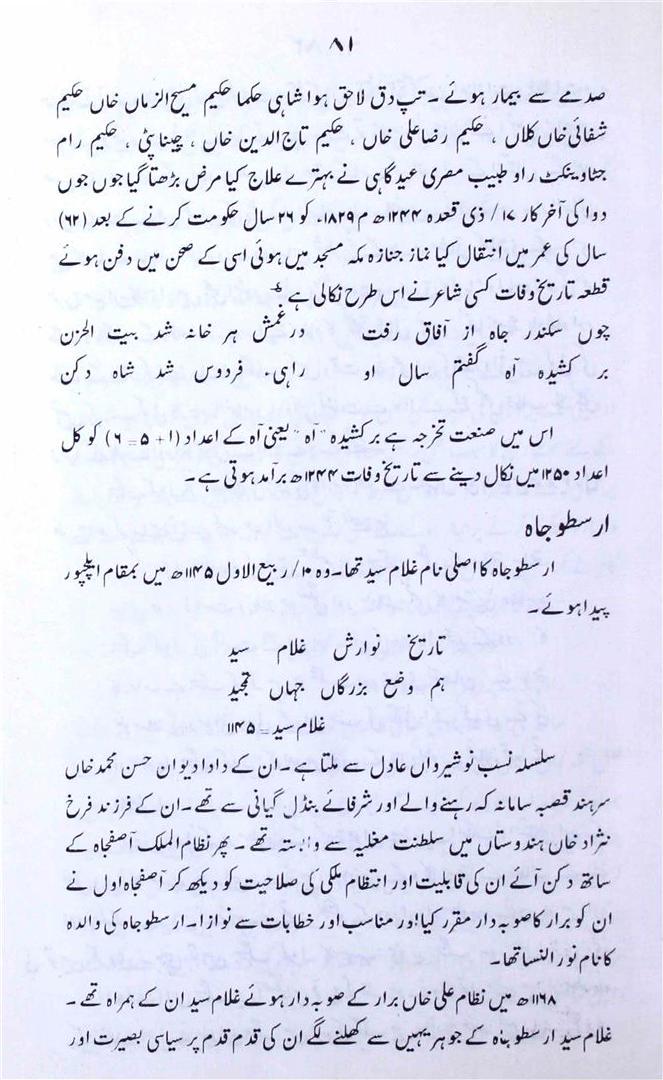 ۸۱
صدے سے بیمار ہوئے ۔ تپ دق لاحق ہوا شاہی حکما حکیم مسیح الزماں خاں حکیم
شفائی خاں کلاں ، حکیم رضا علی خاں ، حکیم تاج الدین خاں ، چیناپٹی ، حکیم رام
جٹا وینکٹ راو طبیب مصری عید گاہی نے بہترے علاج کیا مرض بڑھتا گیا جوں جوں
دوا کی آخر کار ۱۷/ ذی قعدہ ۱۲۴۴ھ م ۱۸۲۹ء کو ۲۶ سال حکومت کرنے کے بعد (۶۲)
سال کی عمر میں انتقال کیا نماز جنازہ مکہ مسجد میں ہوئی اسی کے صحن میں دفن ہوئے
قطعہ تاریخ وفات کسی شاعر نے اس طرح نکالی ہے
چوں سکندر جاہ از آفاق رفت درغمش ہر خانہ شد بیت الحزن
بر کشیدہ آہ گفتم سال او راہیٔ فردوس شد شاہ دکن
اس میں صنعت تخرجہ ہے بر کشیدہ "آہ" یعنی آہ کے اعداد (۱ + ۵ = ۶) کو کل
اعداد ۱۲۵۰ میں نکال دینے سے تاریخ وفات ۱۲۴۴ھ برآمد ہوتی ہے ۔
ارسطو جاہ
ارسطو جاہ کا اصلی نام غلام سید تھا۔ وہ ۱۰/ ربیع الاول ۱۱۴۵ھ میں بمقام ایلچپور
پیدا ہوئے ۔
تاریخ نوازش غلام سید
ہم وضع بزرگاں جہاں تمجید
غلام سید = ۱۱۴۵
سلسلہ نسب نوشیرواں عادل سے ملتا ہے ۔ ان کے دادا دیوان حسن محمد خاں
سرہند قصبہ سامانہ کہ رہنے والے اور شرفائے بنڈل گیانی سے تھے ۔ ان کے فرزند فرخ
نژاد خاں ہندوستاں میں سلطنت مغلیہ سے وابستہ تھے ۔ پھر نظام الملک آصفجاہ کے
ساتھ دکن آئے ان کی قابلیت اور انتظام ملکی کی صلاحیت کو دیکھ کر آصفجاہ اول نے
ان کو برار کا صوبہ دار مقرر کیا اور مناسب اور خطابات سے نوازا ۔ ارسطو جاہ کی والدہ
کا نام نور النسا تھا۔
۱۱۶۸ھ میں نظام علی خاں برار کے صوبہ دار ہوئے غلام سید ان کے ہمراہ تھے ۔
غلام سید ارسطو جاہ کے جوہر یہیں سے کھلنے لگے ان کی قدم قدم پر سیاسی بصیرت اور